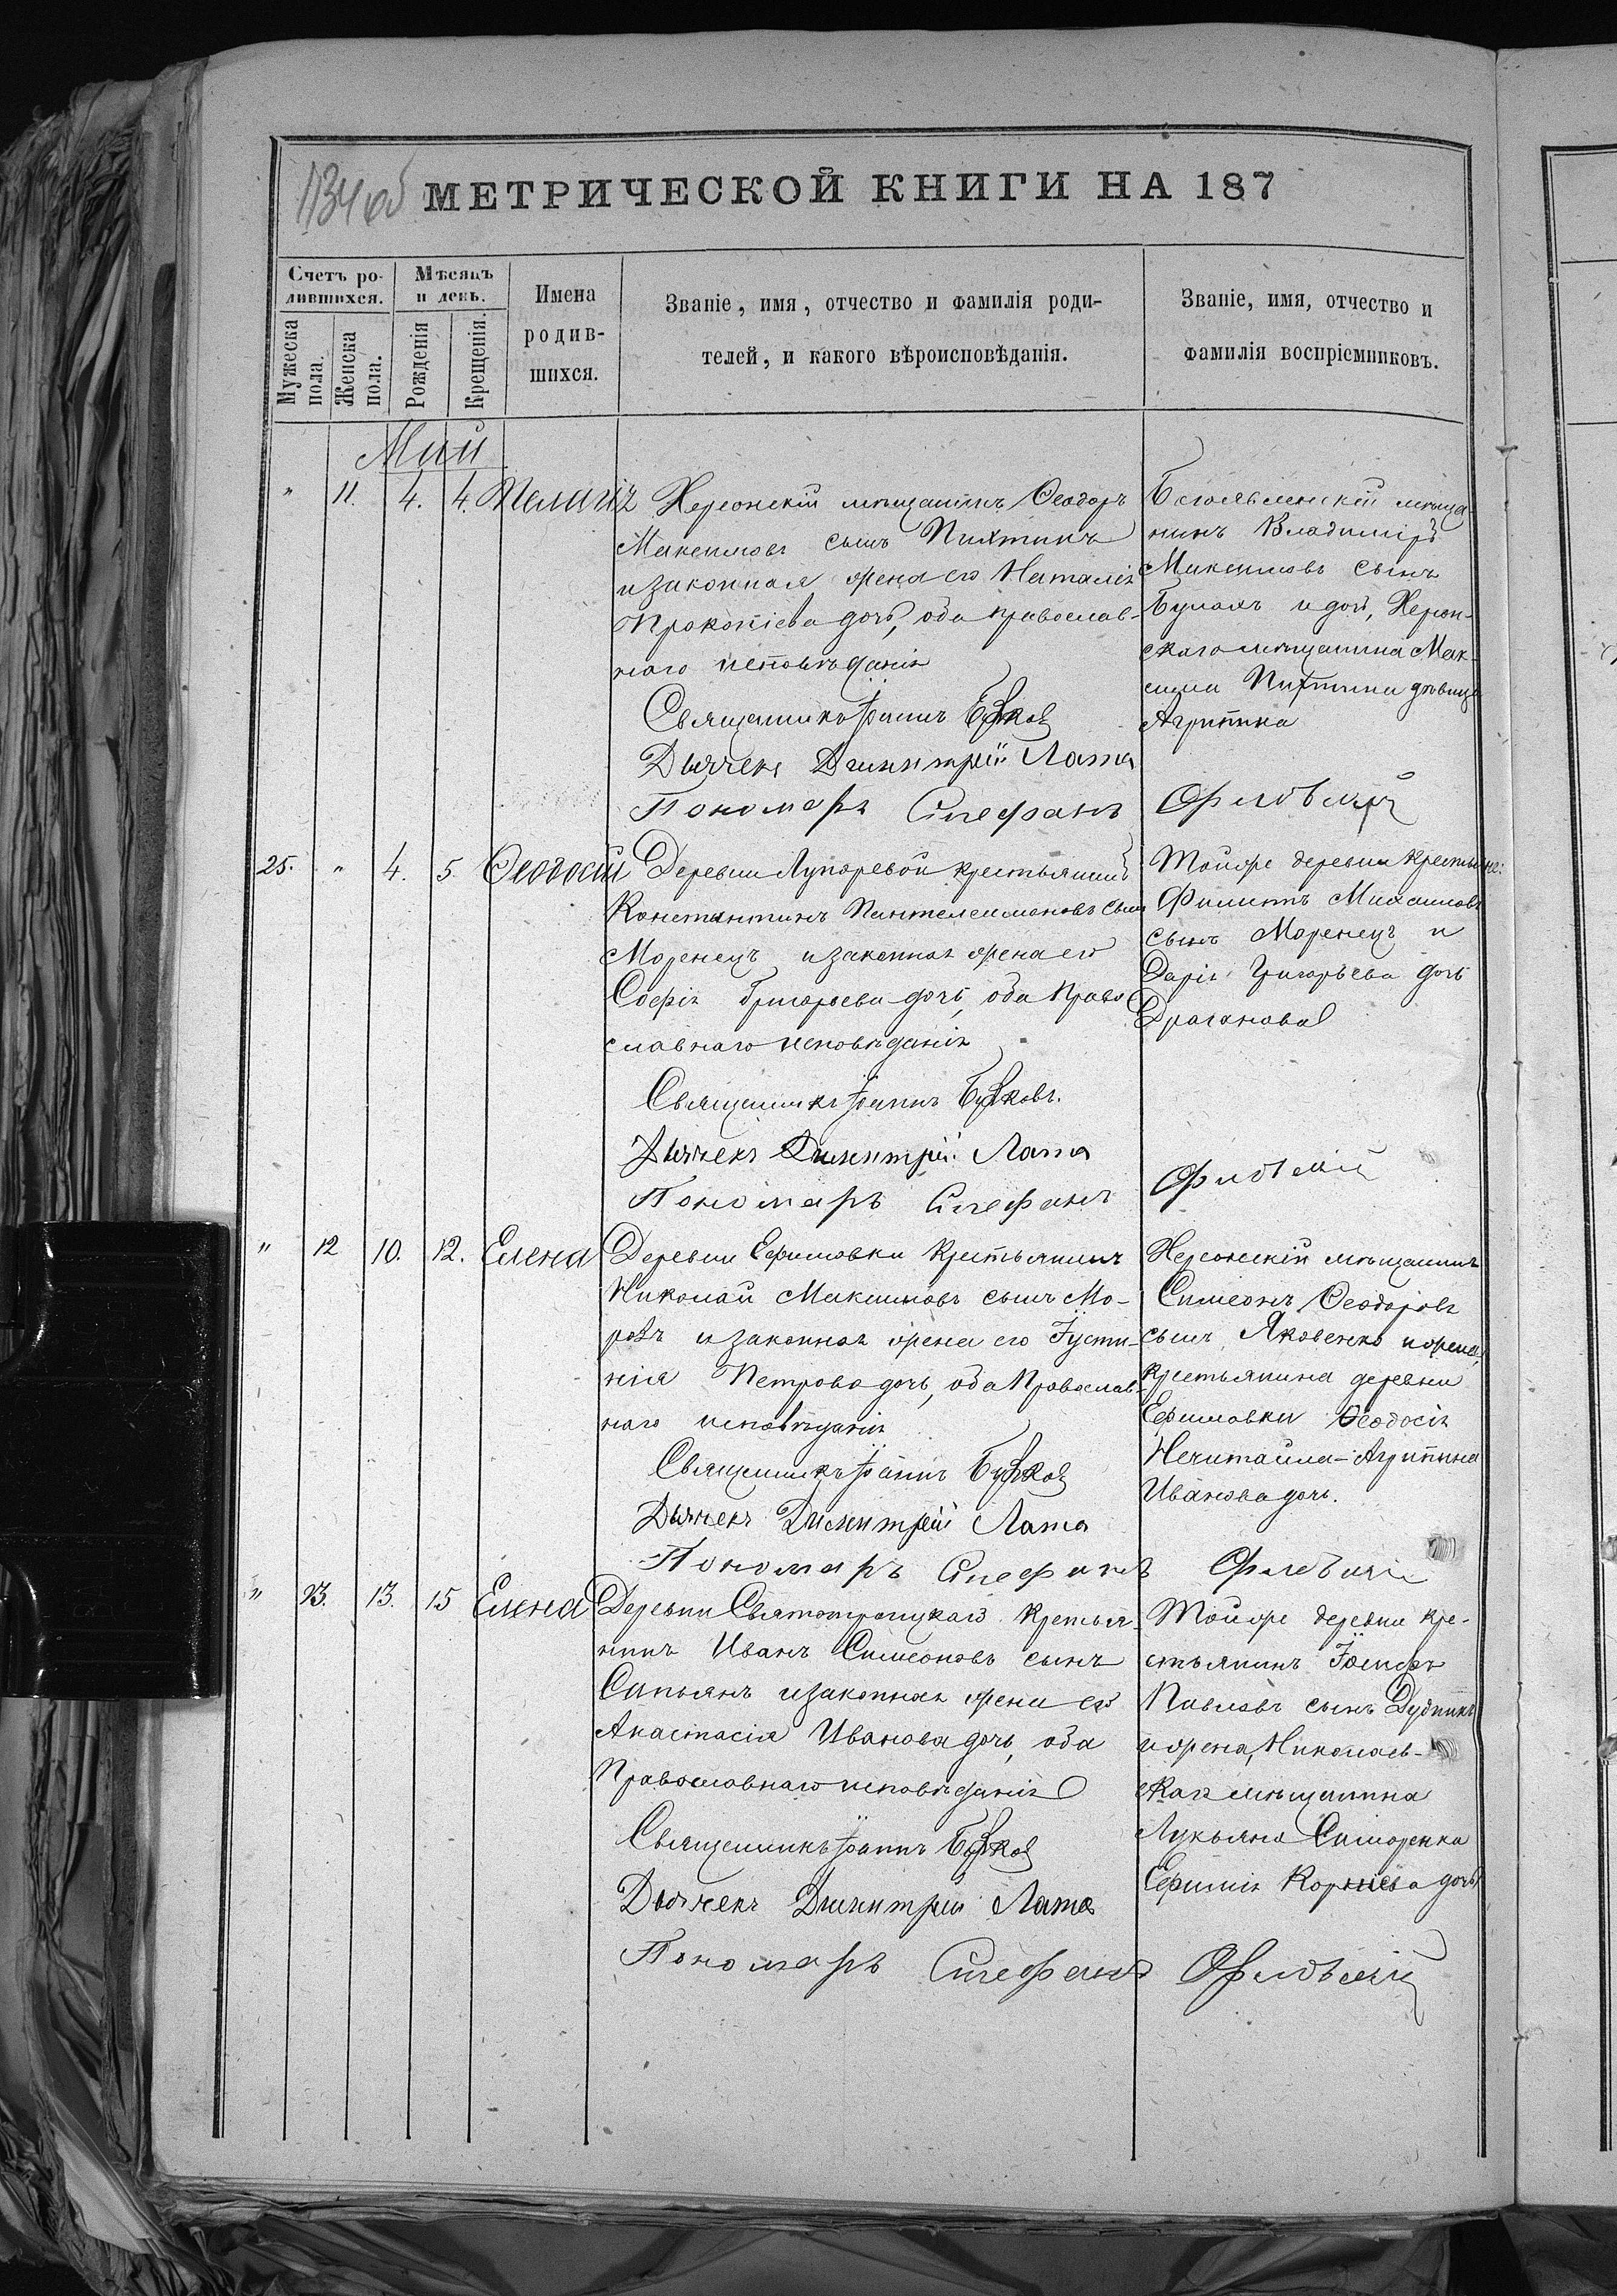 1134 об
МЕТРИЧЕСКОЙ КНИГИ НА 187
Счетъ ро-
дившихся.
Мужеска
пола.
Женска
пола.
Мѣсяцъ
и день.
Рожденія
Крещенія.
Имена
родив-
шихся.
Званіе, имя, отчество и фамилія роди-
телей, и какого вѣроисповѣданія.
Званіе, имя, отчество и
фамилія воспріемниковъ.
Май
" 11. 4. 4. Пелагія
Херсонскій мѣщанинъ Ѳеодоръ
Максимовъ сынъ Пихтинъ
и законная жена его Наталія
Прокопіева дочь, оба православ-
наго исповѣданія
Священникъ Іоаннъ
Дьячекъ Димитрій Лата
Пономарь Стефанъ
Богоявленскій мѣща-
нинъ Владиміръ
Максимовъ сынъ
и дочь, Херсон-
скаго мѣщанина Мак-
сима Пихтина дѣвица
Агрипина
25. " 4. 5 Ѳеодосій
Деревни Лупаревой крестьянинъ
Константинъ Пантелеимоновъ сынъ
Моренецъ и законная жена его
Софія Григорьева дочь, оба право
славнаго исповѣданія
Священникъ Іоаннъ
Дьячекъ Димитрій Лата
Пономарь Стефанъ
Тойже деревни крестьяне:
Филиппъ Михаиловъ
сынъ Моренецъ и
Дарія Григорьева дочь
Драганова
" 12 10. 12. Елена
Деревни Ефимовки крестьянинъ
Николай Максимовъ сынъ Мо-
розъ и законная жена его Іусти-
нія Петрова дочь, оба православ-
наго исповѣданія
Священникъ Іоаннъ
Дьячекъ Димитрій Лата
Пономарь Стефанъ
Херсонскій мѣщанинъ
Симеонъ Ѳеодоровъ
сынъ Яковенко и жена,
крестьянина деревни
Ефимовки Ѳеодосія
Нечитайла - Агрипина
Иванова дочь.
" 13. 13. 15 Елена
Деревни Святотроицкаго крестья-
нинъ Иванъ Симеоновъ сынъ
Сапьянъ и законная жена его
Анастасія Иванова дочь, оба
православнаго исповѣданія
Священникъ Іоаннъ
Дьячекъ Димитрій Лата
Пономарь Стефанъ
Тойже деревни кре-
стьянинъ Іосифъ
Павловъ сынъ Дудникъ
и жена, Николаев-
скаго мѣщанина
Лукьяна
Ефимія Корніева дочь